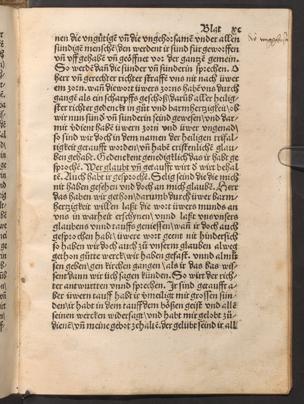 Blat xc
nen die vngütigē vñ die vngehorsamē vnder allen
sündigē menschē/ den werdent ir sünd für geworffen
vñ vff gehabē vñ geöffnet vor der gantzē gemein.
So werdē dañ die sünder vñ sünderin sprechen. O
herr vñ gerechter richter straffe vns nit nach üwer
em zorn. wañ die wort üwers zorns habē vns durch
gangē als ein scharpffs geschoß/ darüb aller heilig
ster richter gedenck in güt vnd barmhertzigkeit/ ob
wir nun sünd vñ sünderin seind gewesen/ vnd dar
mit vdient habē üwern zorn vnd üwer vngenad/
so sind wir doch in dem namen der heiligen trifal
tigkeit getaufft worden/ vñ habē cristenliche glau
ben gehabt. Gedenckent genödiklich das ir habt ge
sprochē. Wer glaubt vñ getaufft wirt d wirt behal
tē. Auch habt ir gesprochē. Selig seind die die mich
nit haben gesehen vnd doch an mich glaubē. Herr
das haben wir gethon/ darumb durch üwer barm
hertzigkeit willen laßt die wort üwers munds an
vns in warheit erschynen/ vnnd laßt vns vnsers
glaubens vnnd tauffs geniessen/ wañ ir doch auch
gesprochen habt/ üwere wort geent nit hindersich
so haben wir doch auch zů vnserm glauben alweg
gethon gütte werck/ wir haben gefast. vnnd almů
sen geben/ gen kirchen gangen/ als ir das bas wis
sent/ dann wir üch sagen künden. So wirt der rich
ter antwurtten vnnd sprechen. Ir sind getaufft a
ber üwern tauff habt ir vmeiligt mit grossen sün
den/ ir habt in dem tauff dem bösen geist vnd allē
seinen wercken widersagt/ vnd habt mir gelobt zů
dienē/ vñ meine gebot zehaltē. der gelübt seind ir all